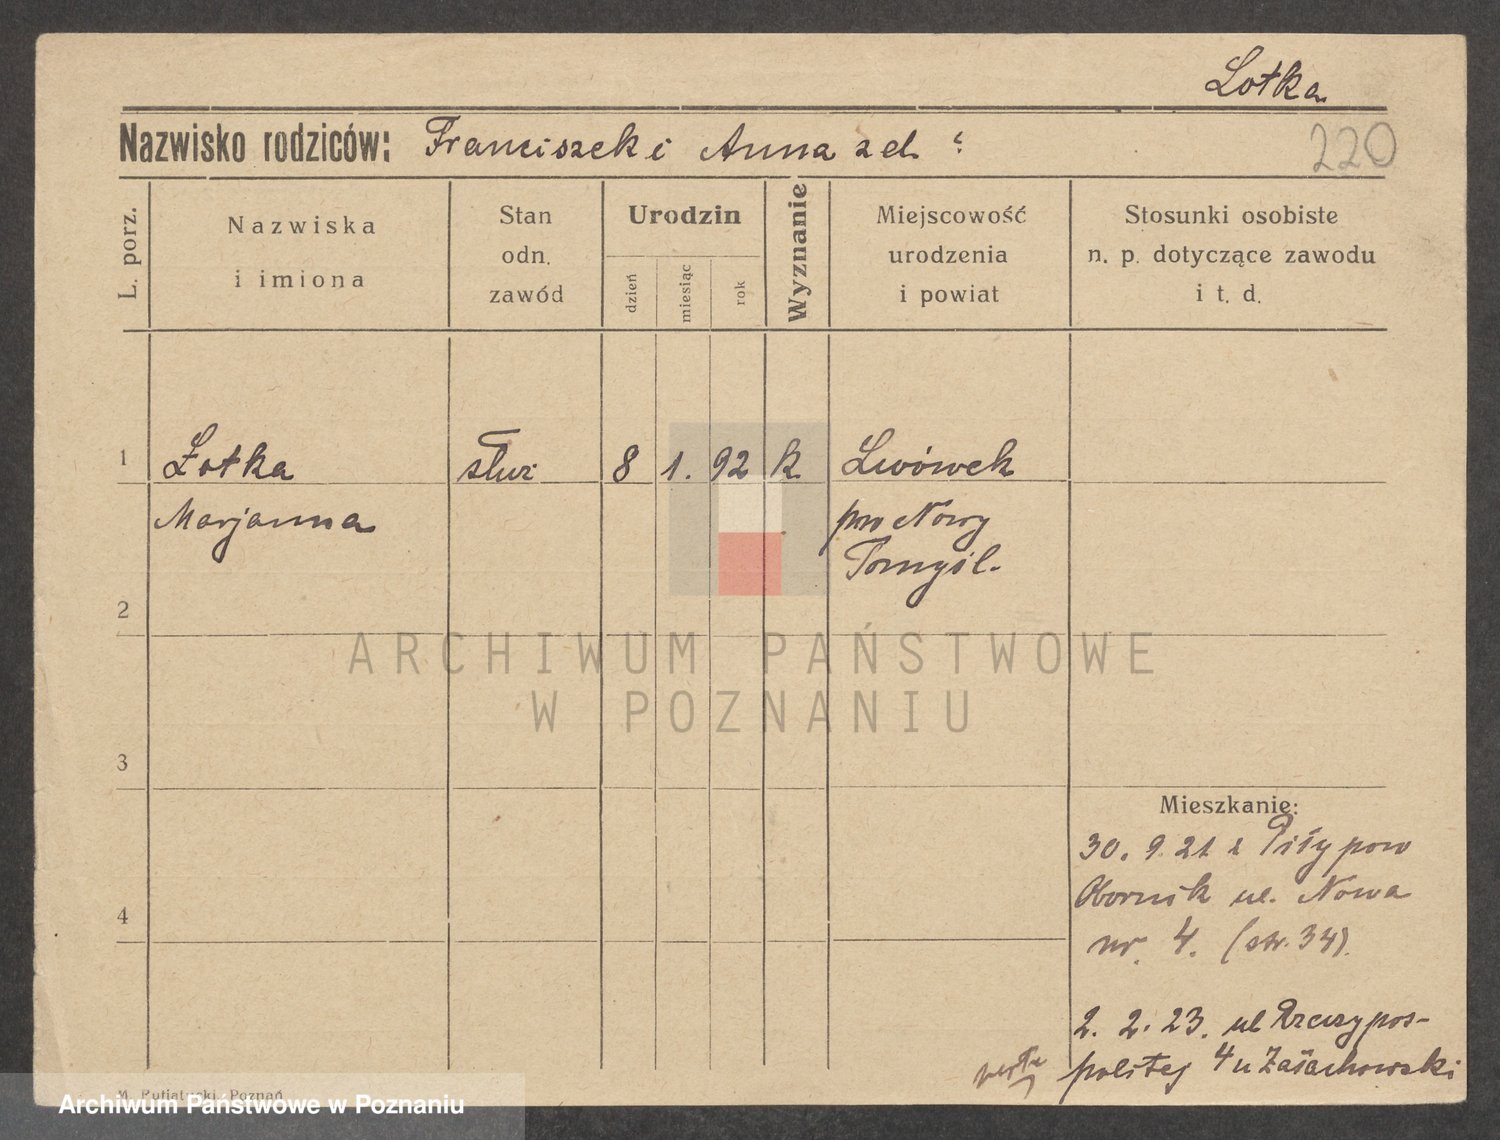 Lotka
Nazwisko rodziców: Franciszek i Anna z d. ?
220
L. porz.
Nazwiska
i imiona
Stan
odn.
zawód
Urodzin
dzień
miesiąc
rok
Wyznanie
Miejscowość
urodzenia
i powiat
Stosunki osobiste
n. p. dotyczące zawodu
i t. d.
1 Lotka służ 8 1. 92 k. Lwówek
Marjanna pow Nowy
Tomyśl.
2
ARCHIWUM PAŃSTWOWE
W POZNANIU
3
Mieszkanie:
30. 9. 21 z Piły pow
Obornik ul. Nowa
4
nr. 4. (str. 34).
2. 2. 23. ul Rzeczypos-
politej 4 u
verte
M. Putiatycki, Poznań
Archiwum Państwowe w Poznaniu